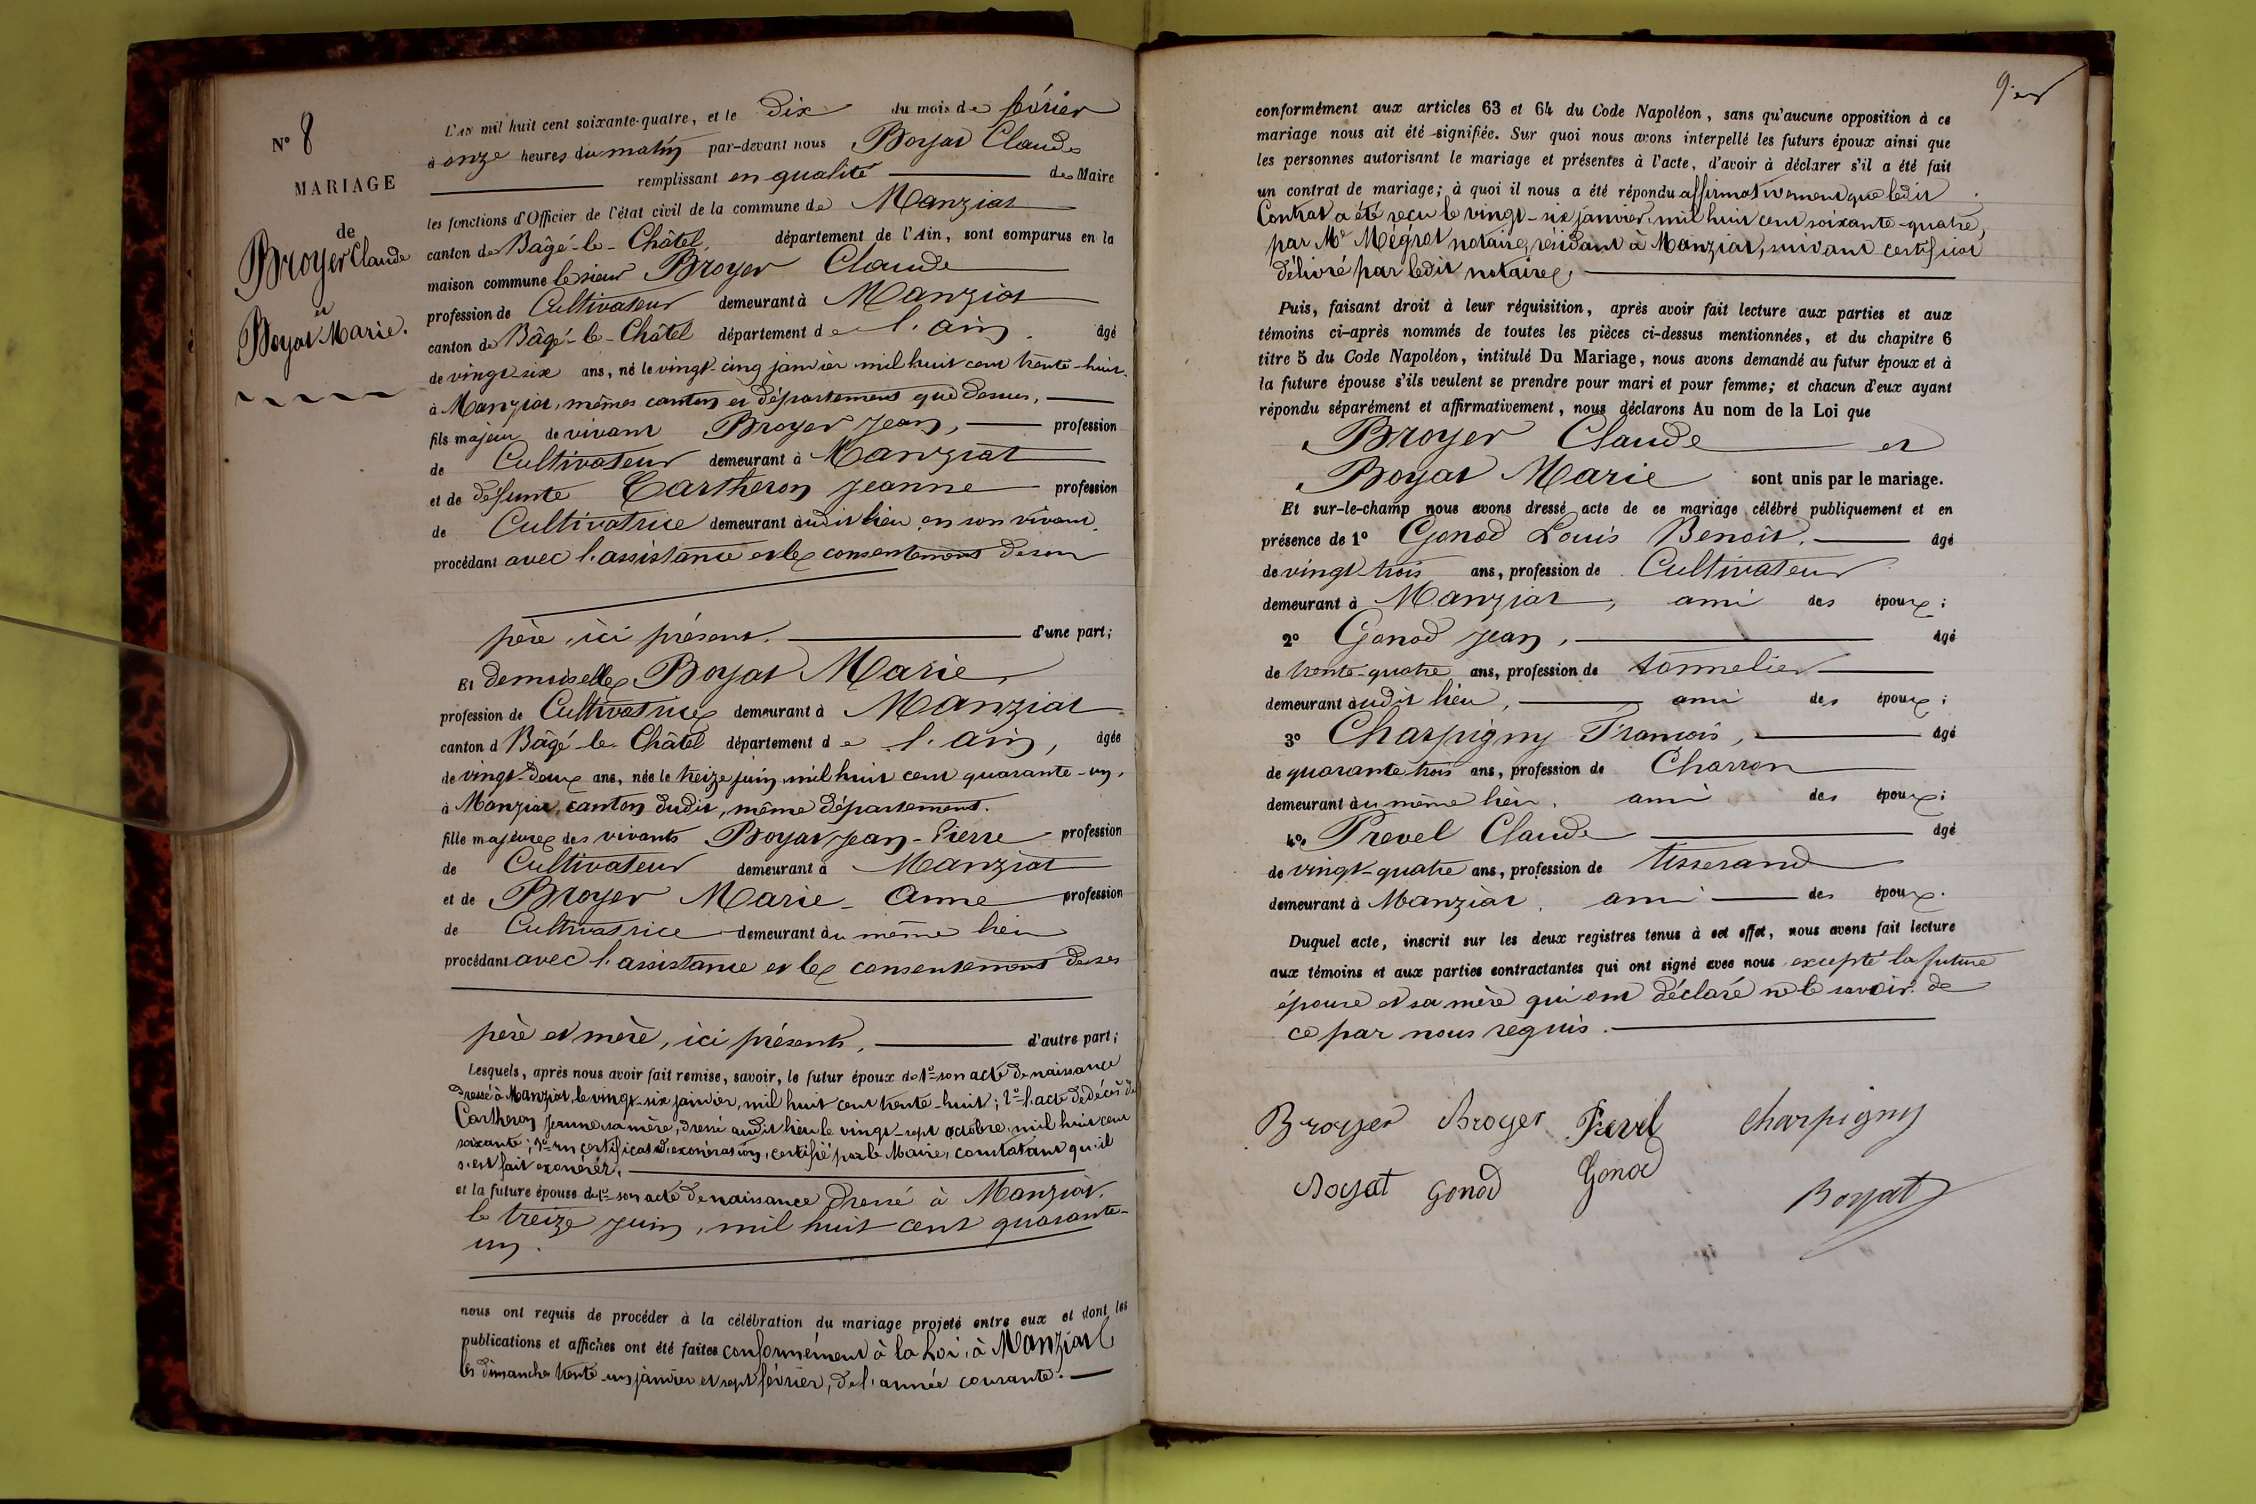 N° 8
MARIAGE
de
Broyer Claude
et
Boyat Marie.
L'an mil huit cent soixante-quatre, et le dix du mois de février
à onze heures du matin par-devant nous Boyat Claude
remplissant en qualité de Maire
les fonctions d'Officier de l'état civil de la commune de Manziat
canton de Bâgé-le-Châtel, département de l'Ain, sont comparus en la
maison commune le sieur Broyer Claude
profession de Cultivateur demeurant à Manziat
canton de Bâgé-le-Châtel département de l'ain. âgé
de vingt-six ans, né le vingt-cinq janvier mil huit cent trente-huit.
à Manziat, mêmes canton et département que dessus,
fils majeur de vivant Broyer Jean, profession
de Cultivateur demeurant à Manziat
et de défunte Cartheron Jeanne profession
de Cultivatrice demeurant audit lieu en son vivant.
procédant avec l'assistance et le consentement de son
père, ici présent. d'une part;
Et demoiselle Boyat Marie,
profession de Cultivatrice demeurant à Manziat
canton d Bâgé-le-Châtel département de l'ain, âgée
de vingt-deux ans, née le treize juin mil huit cent quarante-un,
à Manziat, canton dudit, même département.
fille majeure des vivants Boyat Jean-Pierre profession
de Cultivateur demeurant à Manziat
et de Broyer Marie-Anne profession
de Cultivatrice demeurant au même lieu
procédant avec l'assistance et le consentement de ses
père et mère, ici présents, d'autre part;
Lesquels, après nous avoir fait remise, savoir, le futur époux de 1° son acte de naissance
dressé à Manziat, le vingt-six janvier, mil huit cent trente-huit; 2° l'acte de décès de
Cartheron Jeanne sa mère, dressé audit lieu le vingt-sept octobre mil huit cent
soixante; 3° un certificat d'exonération, certifié par le Maire, constatant qu'il
s'est fait exonérer,
et la future épouse de 1° son acte de naissance dressé à Manziat,
le treize juin, mil huit cent quarante-
un.
nous ont requis de procéder à la célébration du mariage projeté entre eux et dont les
publications et affiches ont été faites conformément à la Loi, à Manziat
les dimanches trente-un janvier et sept février, de l'année courante.
conformément aux articles 63 et 64 du Code Napoléon, sans qu'aucune opposition à ce
mariage nous ait été signifiée. Sur quoi nous avons interpellé les futurs époux ainsi que
les personnes autorisant le mariage et présentes à l'acte, d'avoir à déclarer s'il a été fait
un contrat de mariage; à quoi il nous a été répondu affirmativement que ledit
Contrat a été reçu le vingt-six janvier mil huit cent soixante-quatre,
par Me Mégrat notaire, résidant à Manziat, suivant certificat
délivré par ledit notaire,
Puis, faisant droit à leur réquisition, après avoir fait lecture aux parties et aux
témoins ci-après nommés de toutes les pièces ci-dessus mentionnées, et du chapitre 6
titre 5 du Code Napoléon, intitulé Du Mariage, nous avons demandé au futur époux et à
la future épouse s'ils veulent se prendre pour mari et pour femme; et chacun d'eux ayant
répondu séparément et affirmativement, nous déclarons Au nom de la Loi que
Broyer Claude et
Boyat Marie sont unis par le mariage.
Et sur-le-champ nous avons dressé acte de ce mariage célébré publiquement et en
présence de 1° Gonod Louis Benoit, âgé
de vingt trois ans, profession de Cultivateur
demeurant à Manziat, ami des époux;
2° Gonod Jean, âgé
de trente-quatre ans, profession de tonnelier
demeurant audit lieu, ami des époux;
3° Charpigny François, âgé
de quarante trois ans, profession de Charron
demeurant au même lieu, ami des époux;
4° Prevel Claude âgé
de vingt-quatre ans, profession de tisserand
demeurant à Manziat, ami des époux.
Duquel acte, inscrit sur les deux registres tenus à cet effet, nous avons fait lecture
aux témoins et aux parties contractantes qui ont signé avec nous excepté la future
épouse et sa mère qui ont déclaré ne le savoir de
ce par nous requis.
Broyer Broyer Prevel Charpigny
Boyat Gonod Gonod Boyat